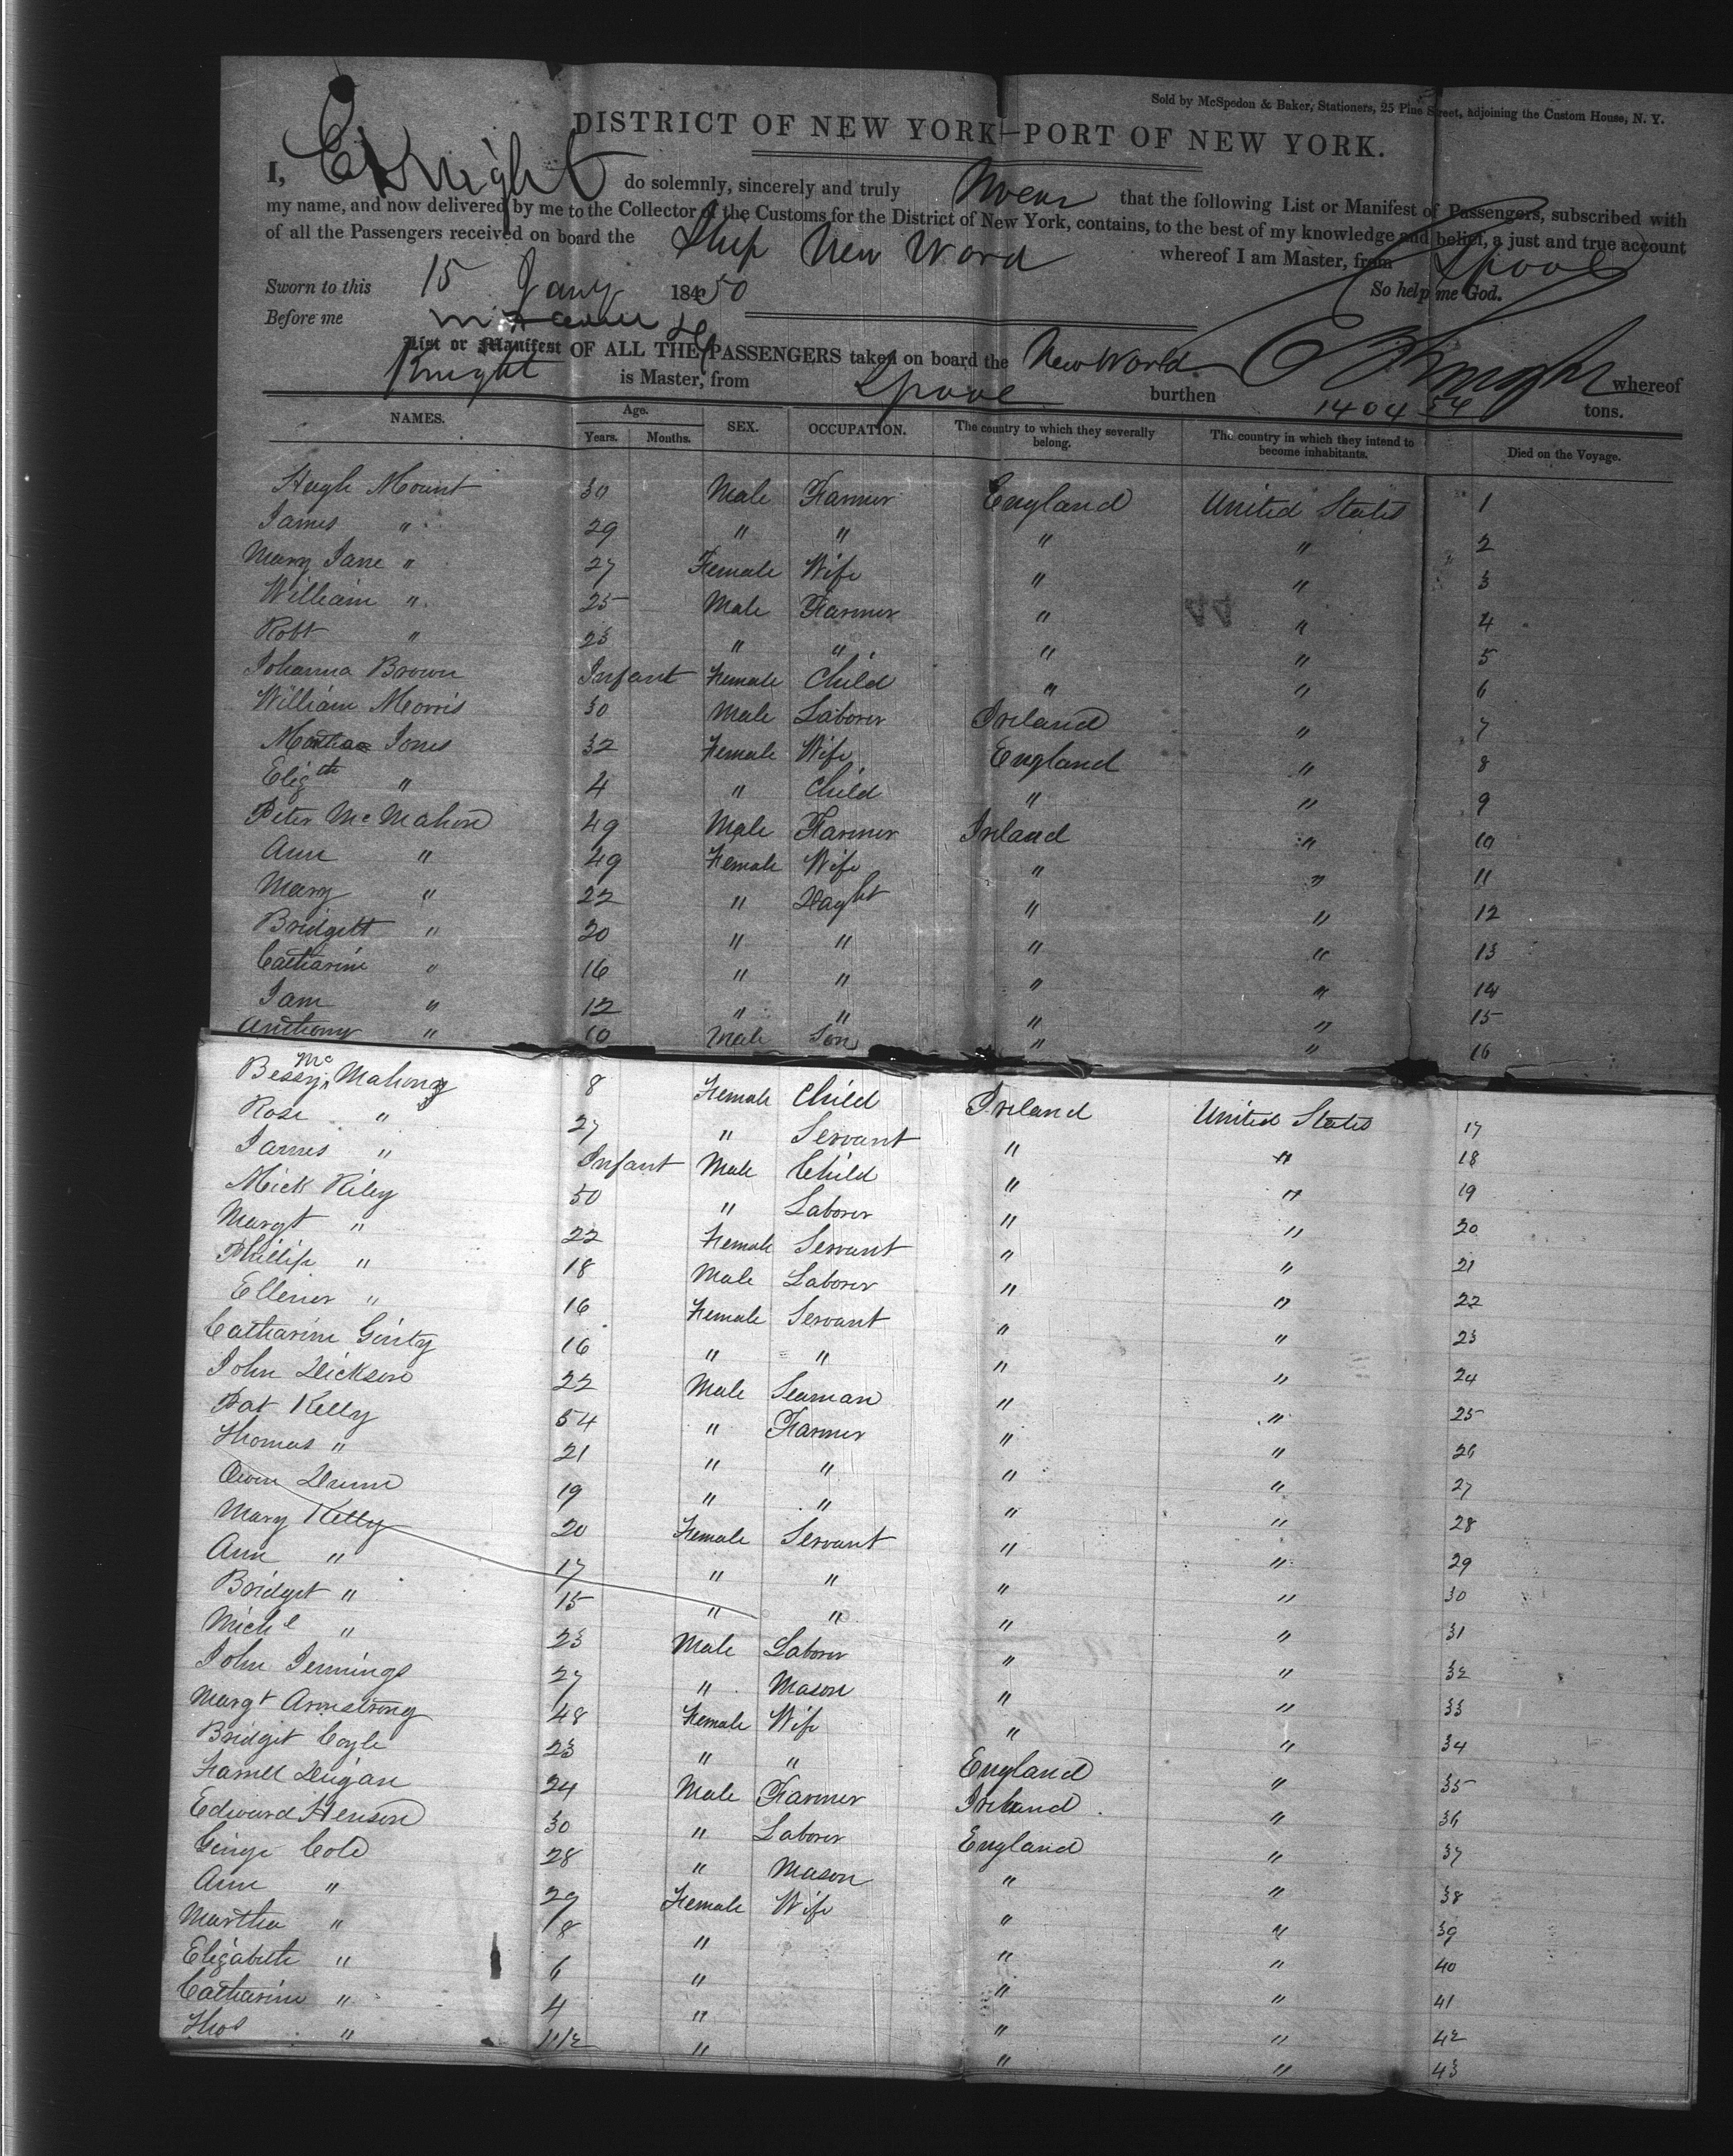 Sold by McSpedon & Baker, Stationers, 25 Pine Street, adjoining the Custom House, N. Y.
DISTRICT OF NEW YORK—PORT OF NEW YORK.
I, E Knight do solemnly, sincerely and truly swear that the following List or Manifest of Passengers, subscribed with
my name, and now delivered by me to the Collector of the Customs for the District of New York, contains, to the best of my knowledge and belief, a just and true account
of all the Passengers received on board the Ship New Word whereof I am Master, from Lpool
Sworn to this 15 Jany 184 50 So help me God.
Before me
List or Manifest OF ALL THE PASSENGERS taken on board the New World whereof
Knight is Master, from Lpool burthen 1404 54 tons.
NAMES. Age. Years. Months. SEX. OCCUPATION. The country to which they severally belong. The country in which they intend to become inhabitants. Died on the Voyage.
Hugh Mount 30 Male Farmer England United States 1
James " 29 " " " " 2
Mary Jane " 27 Female Wife " " 3
William " 25 Male Farmer " " 4
Robt " 23 " " " " 5
Johanna Brown Infant Female Child " " 6
William Morris 30 Male Laborer Ireland " 7
Martha Jones 32 Female Wife England " 8
Elizth " 4 " Child " " 9
Peter McMahon 49 Male Farmer Ireland " 10
Ann " 49 Female Wife " " 11
Mary " 22 " Daght " " 12
Bridgett " 20 " " " " 13
Catharine " 16 " " " " 14
Jam " 12 " " " " 15
Anthony " 10 Male Son " " 16
Bessy Mc Mahon 8 Female Child Ireland United States 17
Rose " 27 " Servant " " 18
James " Infant Male Child " " 19
Mick Riley 50 " Laborer " " 20
Margt " 22 Female Servant " " 21
Phillip " 18 Male Laborer " " 22
Ellener " 16 Female Servant " " 23
Catharine Ginty 16 " " " " 24
John Dickson 22 Male Seaman " " 25
Pat Kelly 54 " Farmer " " 26
Thomas " 21 " " " " 27
Owen Dunn 19 " " " " 28
Mary Kelly 20 Female Servant " " 29
Ann " 17 " " " " 30
Bridget " 15 " " " " 31
Michl " 23 Male Laborer " " 32
John Jennings 27 " Mason " " 33
Margt Armstrong 48 Female Wife " " 34
Bridgit Coyle 23 " " England " 35
Farrell Digan 24 Male Farmer Ireland " 36
Edward Henson 30 " Laborer England " 37
George Cole 28 " Mason " " 38
Ann " 29 Female Wife " " 39
Martha " 8 " " " 40
Elizabeth " 6 " " " 41
Catharine " 4 " " " 42
Thos " 1 1/2 " " " 43